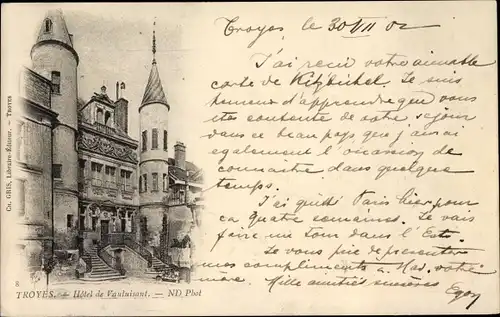 Troyes, le 30/VII 02
J'ai reçu votre aimable
carte de Kitzbichel. Je suis
heureux d'apprendre que vous
êtes contente de votre séjour
dans ce beau pays que j'aurai
également l'occasion de
connaître dans quelque
temps.
J'ai quitté Paris hier pour
quatre semaines. Je vais
faire un tour dans l'Est.
Je vous prie de présenter
mes compliments à Mad. votre
mère. Mille amitiés sincères
Ch. GRIS, Libraire-Éditeur. — TROYES
8
TROYES. — Hôtel de Vauluisant. — ND Phot